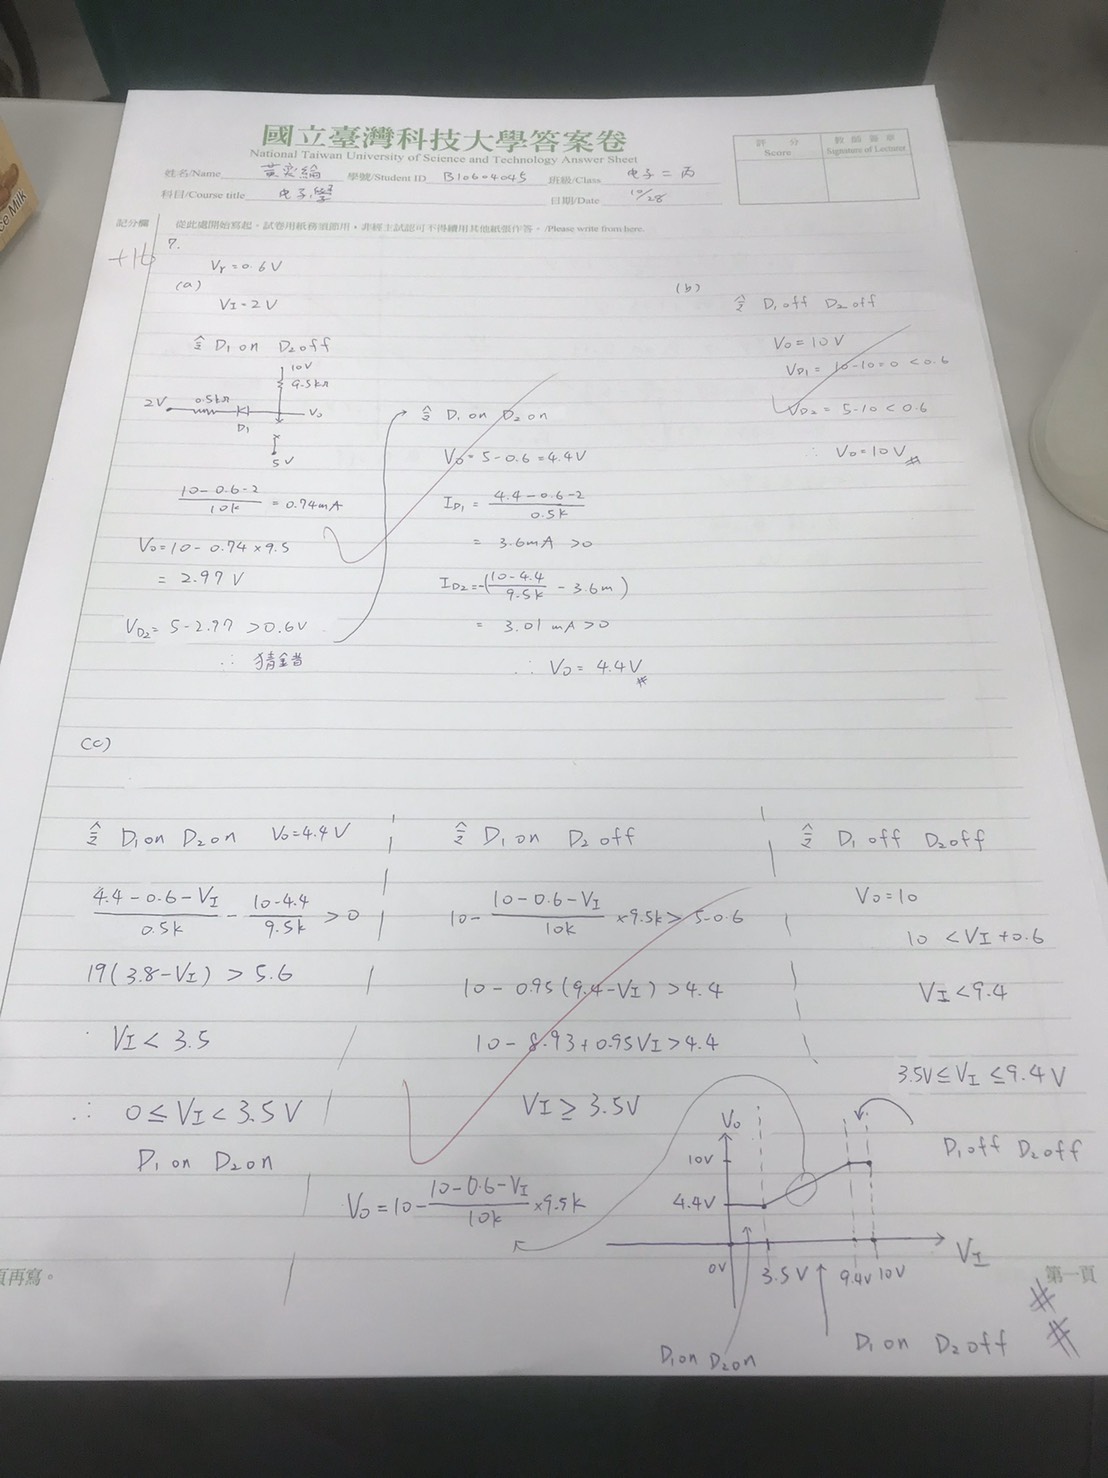 國立臺灣科技大學答案卷
National Taiwan University of Science and Technology Answer Sheet
評 分
Score
教 師 簽 章
Signature of Lecturer
姓名/Name 黃奕綸 學號/Student ID B10604045 班級/Class 电子二丙
科目/Course title 电子學 日期/Date 10/28
記分欄
從此處開始寫起,試卷用紙務須節用,非經主試認可不得續用其他紙張作答。/Please write from here.
+16
7.
Vγ=0.6V
(a)
VI=2V
令 D1 on D2 off
10V
9.5kΩ
2V 0.5kΩ Vo
D1
5V
(10-0.6-2)/10k = 0.74mA
Vo=10-0.74×9.5
= 2.97V
VD2= 5-2.97 >0.6V
∴ 猜錯
令 D1 on D2 on
Vo=5-0.6=4.4V
ID1 = (4.4-0.6-2)/0.5k
= 3.6mA >0
ID2=-((10-4.4)/9.5k - 3.6m)
= 3.01mA>0
∴ Vo= 4.4V #
(b)
令 D1 off D2 off
Vo=10V
VD1= 10-10=0 <0.6
VD2= 5-10<0.6
∴ Vo=10V #
(c)
令 D1 on D2 on Vo=4.4V
(4.4-0.6-VI)/0.5k - (10-4.4)/9.5k > 0
19(3.8-VI) > 5.6
∴ VI< 3.5
∴ 0≤VI<3.5V
D1 on D2 on
令 D1 on D2 off
10-(10-0.6-VI)/10k ×9.5k> 5-0.6
10-0.95(9.4-VI)>4.4
10-8.93+0.95VI>4.4
VI≥3.5V
Vo=10-(10-0.6-VI)/10k ×9.5k
令 D1 off D2 off
Vo=10
10 <VI+0.6
VI<9.4
3.5V≤VI≤9.4V
Vo
10V
4.4V
0V 3.5V 9.4V 10V VI
D1 off D2 off
D1 on D2 on
D1 on D2 off
#
#
頁再寫。
第一頁